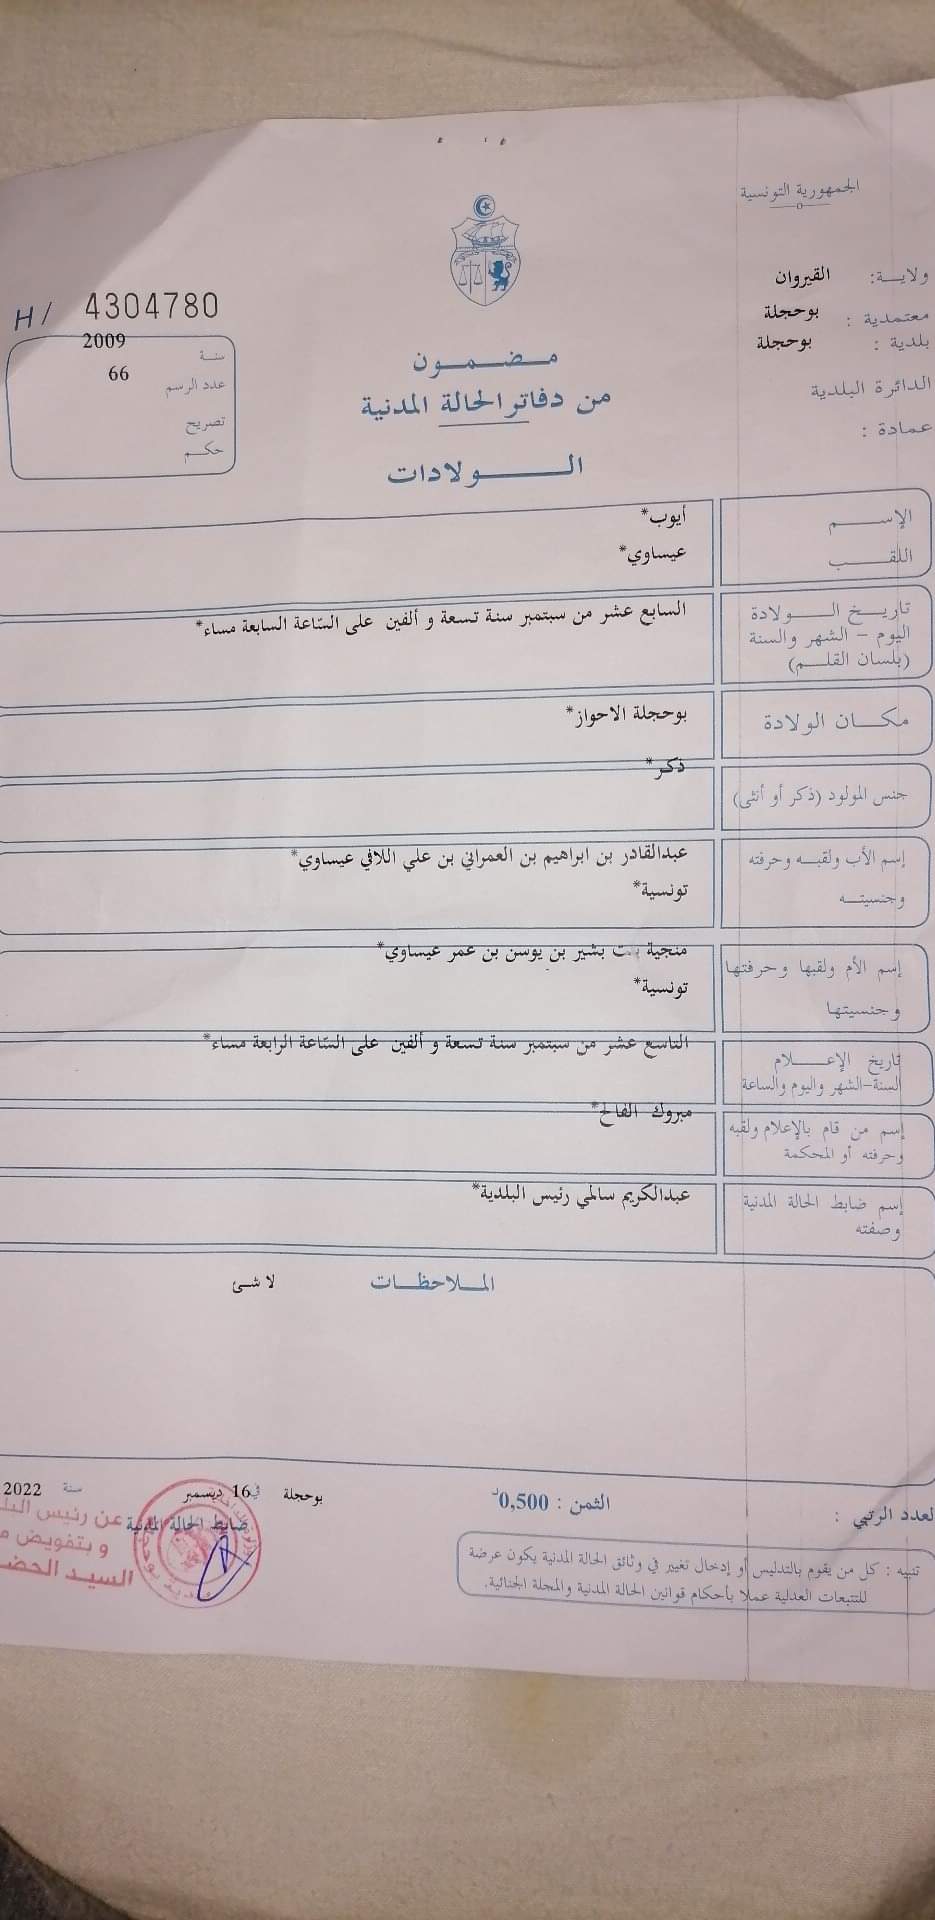 الجمهورية التونسية
ولايـــة: القيروان
معتمدية : بوحجلة
بلدية : بوحجلة
الدائرة البلدية
عمادة :
H/ 4304780
سنة 2009
عدد الرسم 66
تصريح
حكم
مضمون
من دفاتر الحالة المدنية
الـــولادات
الإســـم أيوب*
اللقـــب عيساوي*
تاريـخ الـــولادة السابع عشر من سبتمبر سنة تسعة و ألفين على السّاعة السابعة مساء*
اليوم - الشهر والسنة
(بلسان القلـــم)
مكـــان الولادة بوحجلة الاحواز*
جنس المولود (ذكر أو أنثى) ذكر*
إسم الأب ولقبـه وحرفته عبدالقادر بن ابراهيم بن العمراني بن علي اللافي عيساوي*
وجنسيتـــه تونسية*
إسم الأم ولقبها وحرفتها منجية بنت بشير بن يوسن بن عمر عيساوي*
وجنسيتها تونسية*
تاريخ الإعـــلام التاسع عشر من سبتمبر سنة تسعة و ألفين على السّاعة الرابعة مساء*
السنة-الشهر واليوم والساعة
إسم من قام بالإعلام ولقبه مبروك الفالح*
وحرفته أو المحكمة
إسم ضابط الحالة المدنية عبدالكريم سالمي رئيس البلدية*
وصفته
الملاحظـــات لا شئ
بوحجلة في 16 ديسمبر سنة 2022
ضابط الحالة المدنية
عن رئيس
و بتفويض
السيـد
لعدد الرتبي :
الثمن : 0,500د
تنبيه : كل من يقوم بالتدليس أو إدخال تغيير في وثائق الحالة المدنية يكون عرضة
للتتبعات العدلية عملا بأحكام قوانين الحالة المدنية والمجلة الجنائية.